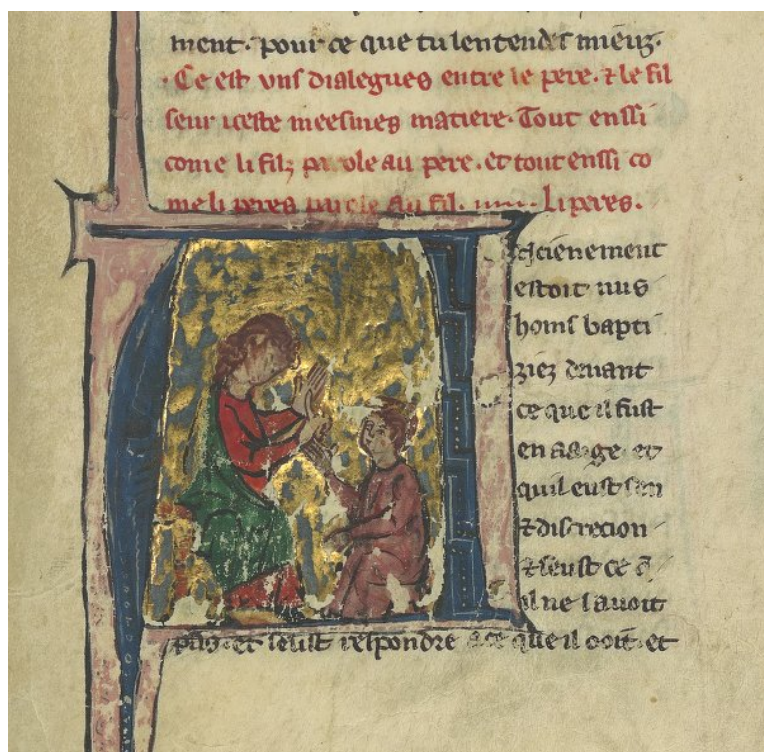 ment. pour ce que tu lentendes mieuz.
. Ce est uns dialegues entre le pere. ⁊ le fil
seur iceste meesmes matiere. Tout enssi
come li filz parole au pere. et tout enssi co
me li peres parole au fil. li peres.
Anciienement
estoit nus
homs bapti
ziez devant
ce que il fust
en aage et
quil eust sen
⁊ discrecion
⁊ seust ce q̃
il ne savoit
pas. et seust respondre a ce que il ooit. et